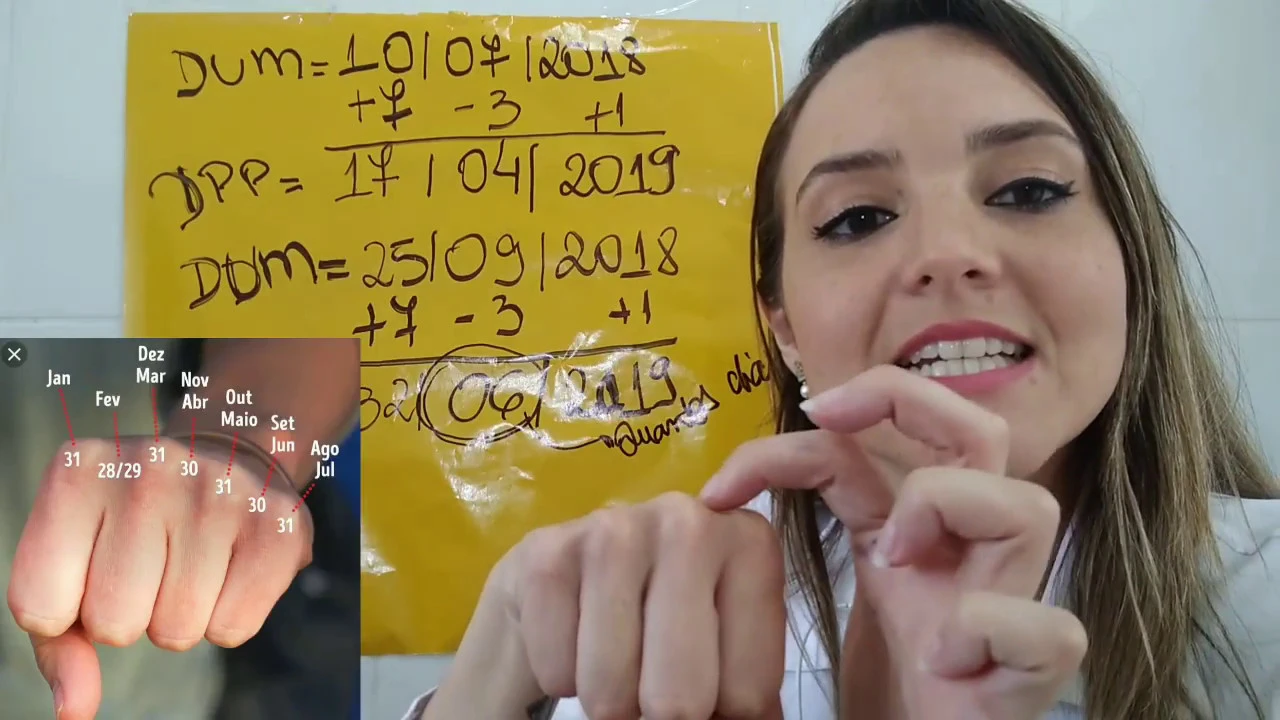 DUM = 10 / 07 / 2018
+7 - 3 +1
DPP = 17 / 04 / 2019
DUM = 25 / 09 / 2018
+7 - 3 +1
32 / 06 / 2019
Quantos dia
Jan
Fev
Dez
Mar
Nov
Abr
Out
Maio
Set
Jun
Ago
Jul
31
28/29
31
30
31
30
31